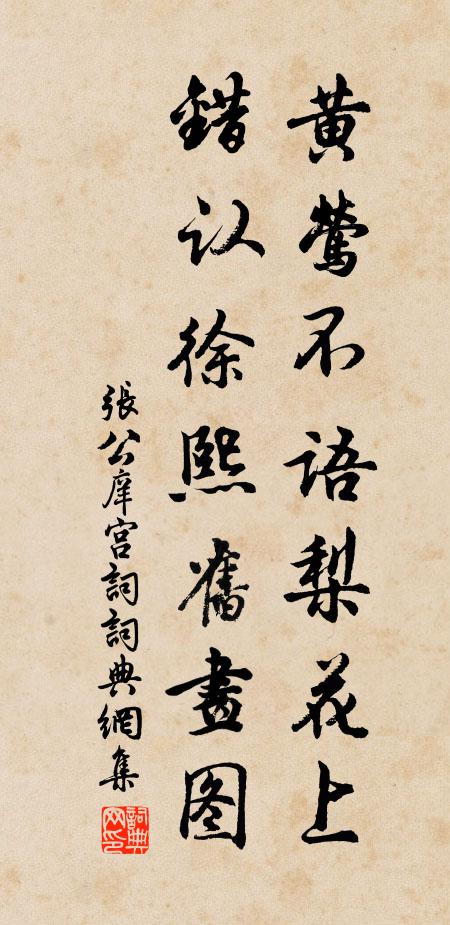 黄莺不语梨花上
错认徐熙舊畫图
張公庠宫詞詞典網集
詞典网印